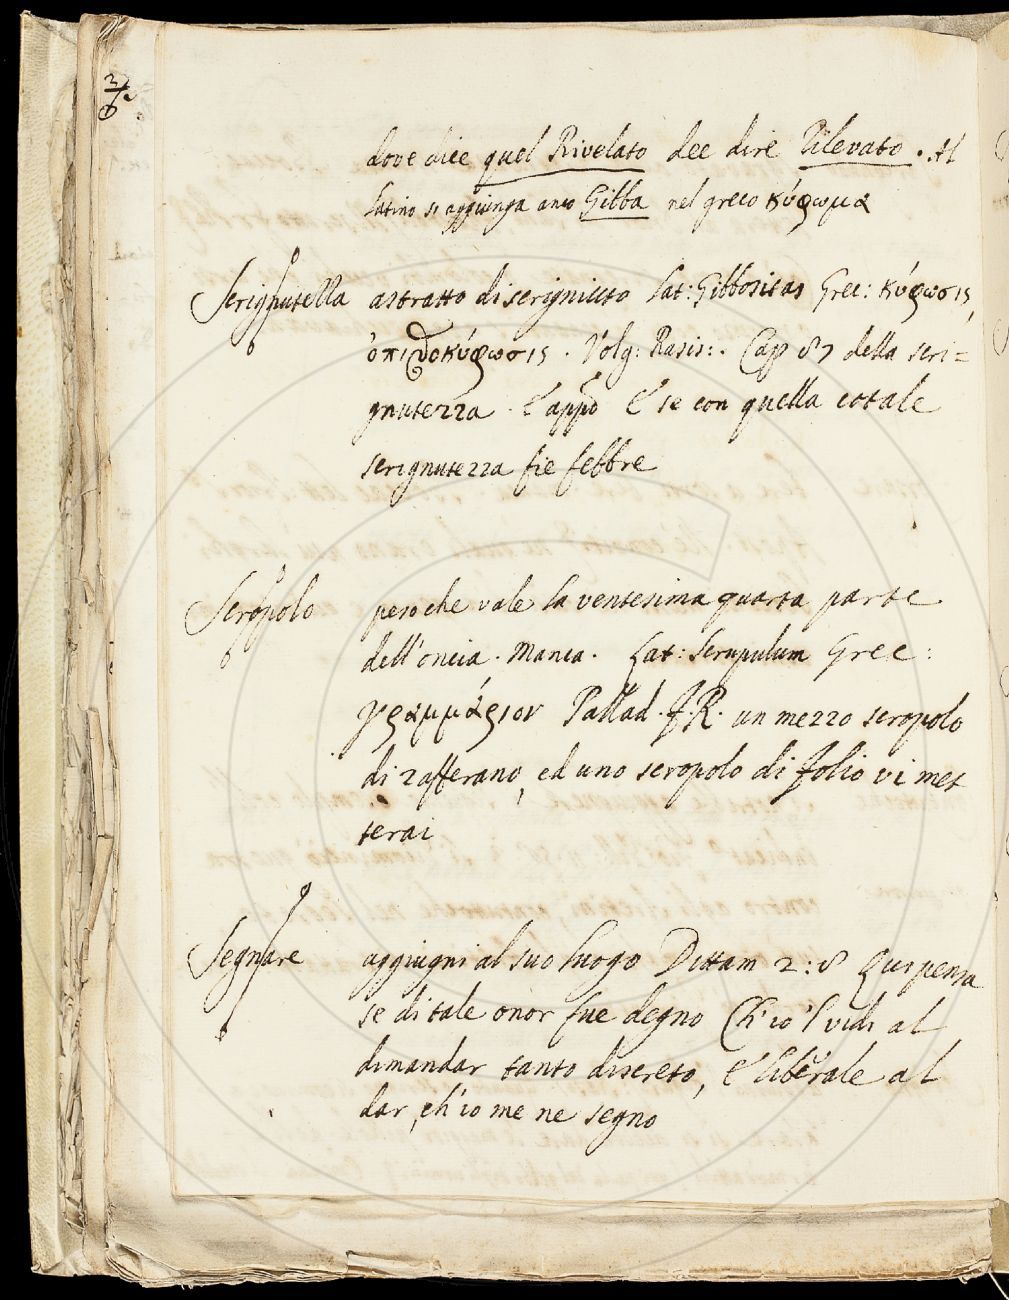 dove dice quel Rivelato dee dire Rilevato. Al
latino si aggiunga anco Gibba nel greco κύφωμα
Serignutezza astratto di scrigniuto Lat: Gibbositas Grec: κύφωσις,
ὀπισθοκύφωσις. Volg: Rasis:. Cap 87 della scri=
gnutezza. E appo E se con quella cotale
scrignutezza fie febbre
Scropolo peso che vale la ventesima quarta parte
dell'oncia. Manca. Lat: Scrupulum Grec:
γραμμάριον Pallad. F. R. un mezzo scropolo
di zafferano, ed uno scropolo di folio vi met
terai
Segnare aggiugni al suo luogo Dittam 2:8 Qui pensa
se di tale onor fue degno Ch'io 'l vidi al
dimandar tanto discreto, E liberale al
dar, ch'io me ne segno